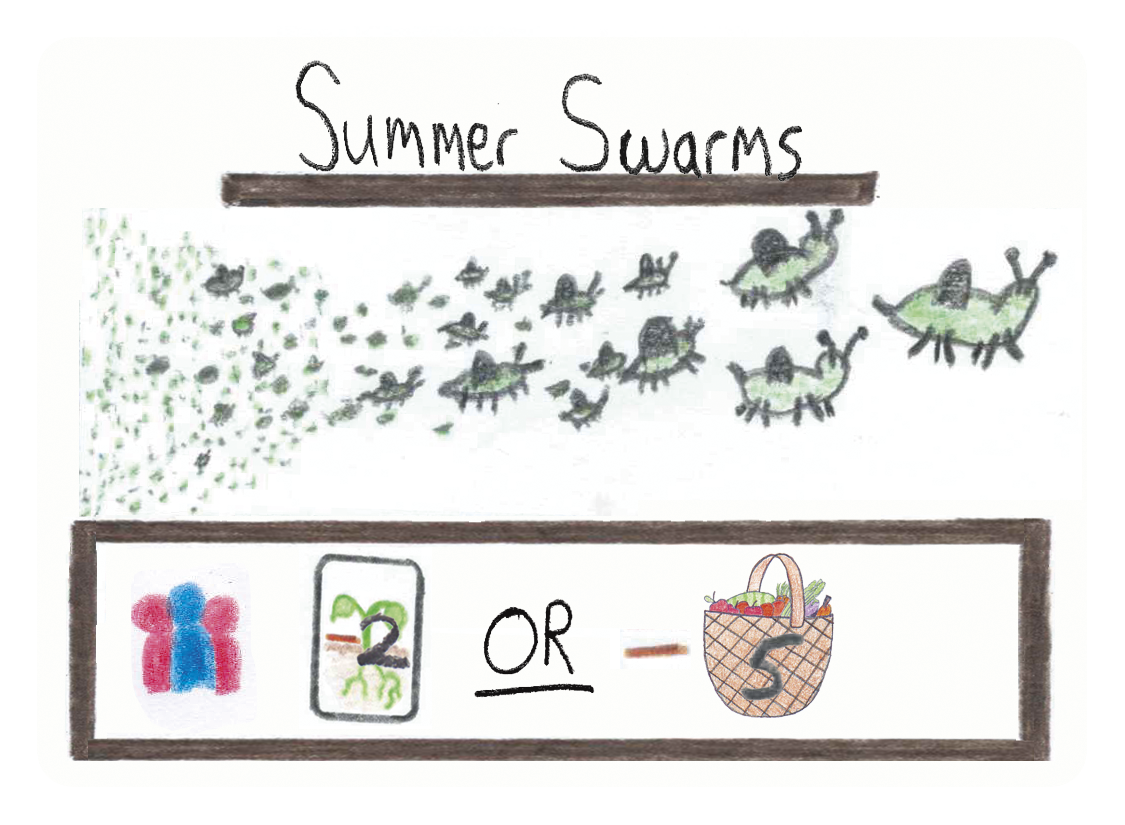 Summer Swarms
-2 OR - 5